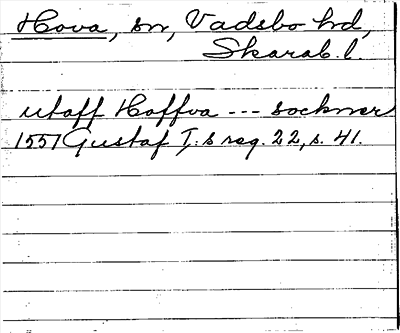 Hova, sn, Vadsbo hd,
Skarab. l.
utaff Hoffva --- sockner
1551 Gustaf I:s reg. 22, s. 41.